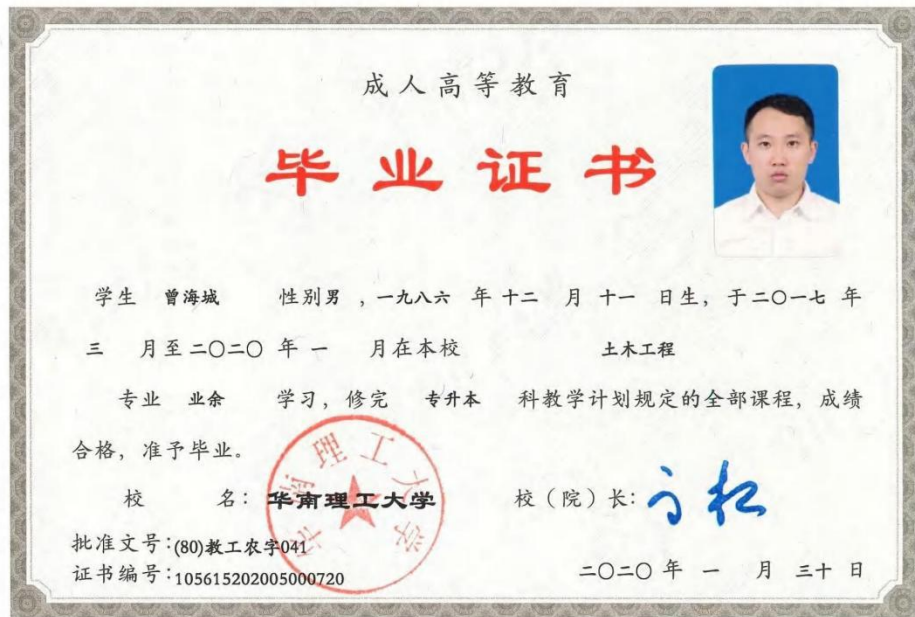 成人高等教育
毕业证书
学生 曾海城 性别 男 ，一九八六 年 十二 月 十一 日生，于 二〇一七 年
三 月至 二〇二〇 年 一 月在本校 土木工程
专业 业余 学习，修完 专升本 科教学计划规定的全部课程，成绩
合格，准予毕业。
校 名：华南理工大学 校（院）长：
华南理工大学
批准文号：(80)教工农字041
证书编号：105615202005000720 二〇二〇 年 一 月 三十 日